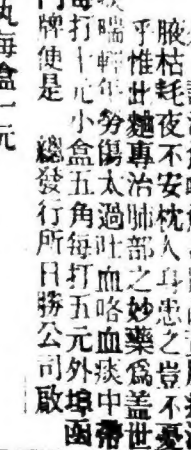 腋枯耗夜不安枕人身患之豈不憂
乎惟此麯專治肺部之妙藥爲蓋世
喘輕年勞傷太過吐血咯血痰中帶
每打十元小盒五角每打五元外埠函
門牌便是　總發行所日勝公司啟
每盒一元